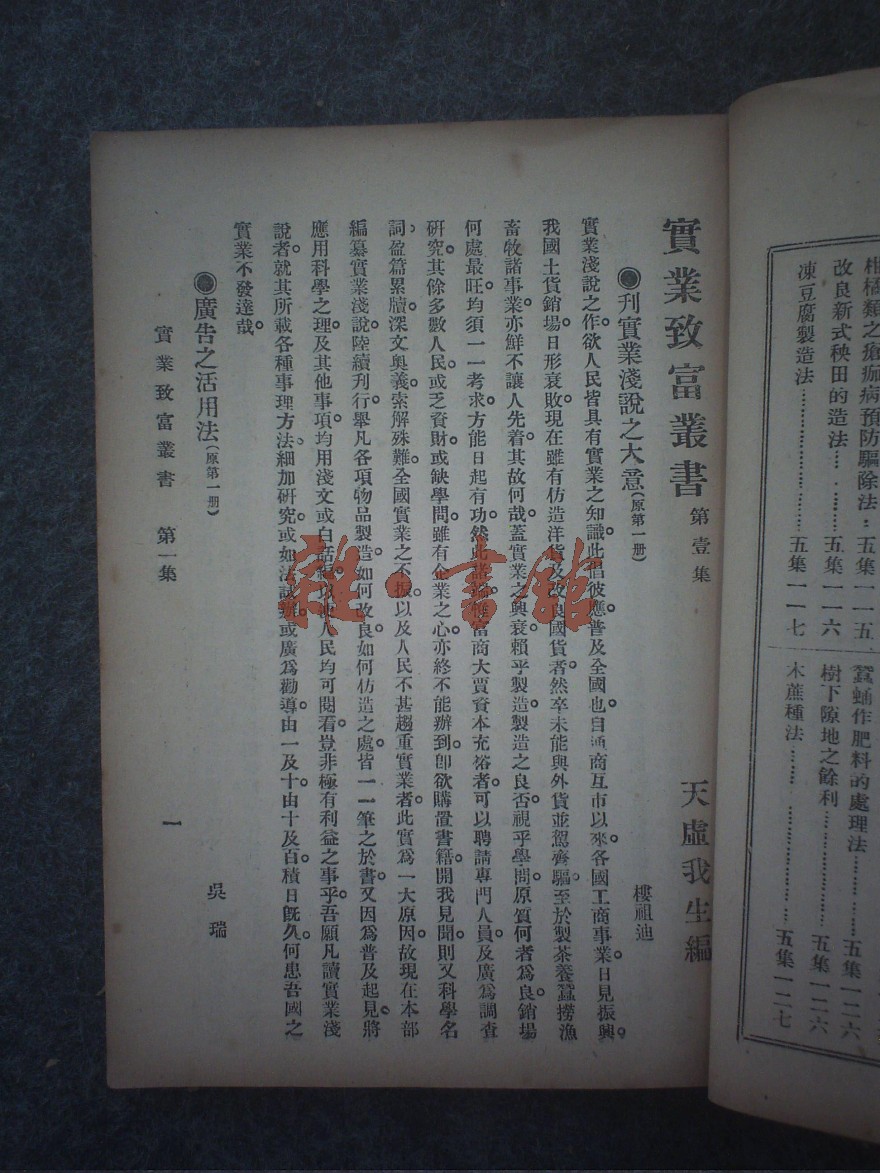 柑橘類之瘡痂病預防驅除法‥五集一一五
改良新式秧田的造法…‥……五集一一六
凍豆腐製造法………………五集一一七
蠶蛹作肥料的處理法………五集一二六
樹下隙地之餘利……………五集一二六
木蔗種法……………………五集一二七
實業致富叢書 第壹集 天虛我生編
●刋實業淺說之大意(原第一册) 樓祖迪
實業淺說之作欲人民皆具有實業之知識此倡彼應普及全國也自通商互市以來各國工商事業日見振興。
我國土貨銷場日形衰敗現在雖有仿造洋貨及改良國貨者然卒未能與外貨並駕齊驅至於製茶養蠶撈漁
畜牧諸事業亦鮮不讓人先着其故何哉蓋實業之興衰賴乎製造製造之良否視乎學問原質何者爲良銷場
何處最旺均須一一考求方能日起有功。然此諸端惟富商大賈資本充裕者可以聘請專門人員及廣爲調查
研究其餘多數人民或乏資財或缺學問雖有企業之心亦終不能辦到卽欲購置書籍開我見聞則又科學名
詞盈篇累牘深文奥義索解殊難全國實業之不振以及人民不甚趨重實業者此實爲一大原因故現在本部
編纂實業淺說陸續刋行舉凡各項物品製造如何改良如何仿造之處皆一一筆之於書又因爲普及起見將
應用科學之理及其他事項均用淺文或白話編成使人民均可閱看豈非極有利益之事乎吾願凡讀實業淺
說者就其所載各種事理方法細加研究或如法試辦或廣爲勸導由一及十由十及百積日旣久何患吾國之
實業不發達哉。
●廣告之活用法(原第一册) 吳瑞
實業致富叢書 第一集 一
雜·書館